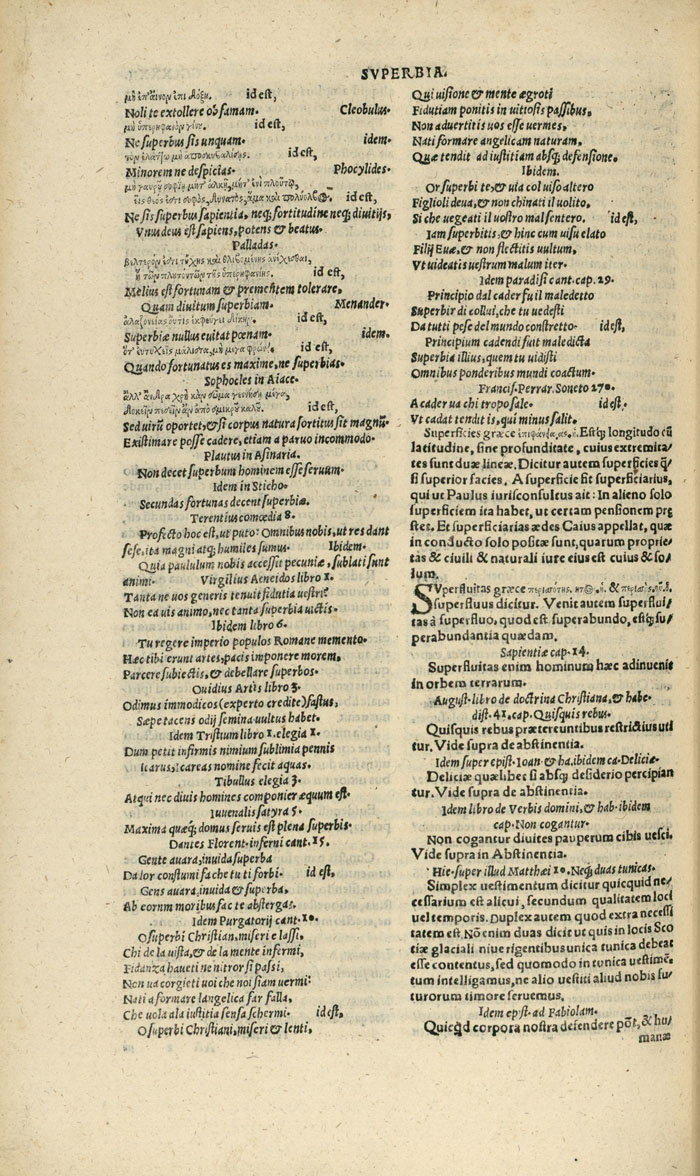 SVPERBIA.
id est,
Noli te extollere ob famam. Cleobulus.
id est,
Ne superbus sis unquam. idem.
id est,
Minorem ne despicias. Phocylides.
id est,
Ne sis superbus sapientia, neq; fortitudine neq; diuitijs,
Vnus deus est sapiens, potens & beatus.
Palladas.
id est,
Melius est fortunam & prementem tolerare,
Quam diuitum superbiam. Menander.
id est,
Superbiæ nullus euitat pœnam. idem.
id est,
Quando fortunatus es maxime, ne superbias.
Sophocles in Aiace.
id est,
Sed uirū oportet, & si corpus natura sortitus sit magnū
Existimare posse cadere, etiam a paruo incommodo.
Plautus in Asinaria.
Non decet superbum hominem esse seruum.
Idem in Sticho.
Secundas fortunas decent superbiæ.
Terentius comœdia 8.
Profecto hoc est, ut puto: Omnibus nobis, ut res dant
sese, ita magni atq; humiles sumus. Ibidem.
Quia paululum nobis accessit pecuniæ, sublati sunt
animi. Virgilius Aeneidos libro 1.
Tanta ne uos generis tenuit fidutia uestri?
Non ea uis animo, nec tanta superbia uictis.
Ibidem libro 6.
Tu regere imperio populos Romane memento.
Hæc tibi erunt artes, pacis imponere morem,
Parcere subiectis, & debellare superbos.
Ouidius Artis libro 3.
Odimus immodicos (experto credite) fastus,
Sæpe tacens odij semina uultus habet.
Idem Tristium libro 1. elegia 1.
Dum petit infirmis nimium sublimia pennis
Icarus, Icareas nomine fecit aquas.
Tibullus elegia 3.
Atqui nec diuis homines componier æquum est.
Iuuenalis satyra 5.
Maxima quæq; domus seruis est plena superbis.
Dantes Florent. inferni cant. 15.
Gente auara, inuida superba
Da lor constumi fa che tu ti forbi. id est,
Gens auara, inuida & superba,
Ab eornm moribus fac te abstergas.
Idem Purgatorij cant. 10.
O superbi Christian, miseri e lassi,
Chi de la uista, & de la mente infermi,
Fidanza haueti ne nitrorsi passi,
Non ua corgieti uoi che noi siam uermi:
Nati a formare langelica farfalla,
Che uola ala iustitia sensa schermi. id est,
O superbi Christiani, miseri & lenti,
Qui uisione & mente ægroti
Fidutiam ponitis in uitiosis passibus,
Non aduertitis uos esse uermes,
Nati formare angelicam naturam,
Quæ tendit ad iustitiam absq; defensione.
Ibidem.
Or superbi te, & uia col uiso altero
Figlioli deua, & non chinati il uolito,
Si che uegeati il uostro mal sentero. id est,
Iam superbitis, & hinc cum uisu elato
Filij Euæ, & non flectitis uultum,
Vt uideatis uestrum malum iter.
Idem paradisi cant. cap. 29.
Principio dal cader fu il maledetto
Superbir di collui, che tu uedesti
Da tutti pese del mondo constretto. id est,
Principium cadendi fuit maledicta
Superbia illius, quem tu uidisti
Omnibus ponderibus mundi coactum.
Francis. Perrar. Soneto 270.
A cader ua chi tropo sale. id est.
Vt cadat tendit is, qui minus salit.
Superficies græce Estq; longitudo cū
latitudine, sine profunditate, cuius extremita/
tes sunt duæ lineæ. Dicitur autem superficies q̄/
si superior facies. A superficie fit superficiarius,
qui ut Paulus iurisconsultus ait: In alieno solo
superficiem ita habet, ut certam pensionem præ
stet. Et superficiarias ædes Caius appellat, quæ
in conducto solo positæ sunt, quarum proprie/
tas & ciuili & naturali iure eius est cuius & so/
lum.
SVperfluitas græce &
superfluus dicitur. Venit autem superflui/
tas à superfluo, quod est superabundo, estq; su/
perabundantia quædam.
Sapientiæ cap. 14.
Superfluitas enim hominum hæc adinuenit
in orbem terrarum.
August. libro de doctrina Christiana, & habe.
dist. 41. cap. Quisquis rebus.
Quisquis rebus prætereuntibus restrictius uti
tur. Vide supra de abstinentia.
Idem super epist. Ioan. & ha. ibidem ca. Deliciæ.
Deliciæ quælibet si absq; desiderio percipian
tur. Vide supra de abstinentia.
Idem libro de Verbis domini, & hab. ibidem
cap. Non cogantur.
Non cogantur diuites pauperum cibis uesci.
Vide supra in Abstinentia.
Hie. super illud Matthæi 10. Neq; duas tunicas.
Simplex uestimentum dicitur quicquid ne/
cessarium est alicui, secundum qualitatem loci
uel temporis. Duplex autem quod extra necessi
tatem est. Nō enim duas dicit ut quis in locis Sco
tiæ glaciali niue rigentibus unica tunica debeat
esse contentus, sed quomodo in tunica uestimē/
tum intelligamus, ne alio uestiti aliud nobis fu/
turorum timore seruemus.
Idem epist. ad Fabiolam.
Quicqd corpora nostra defendere pōt, & hu/
manæ